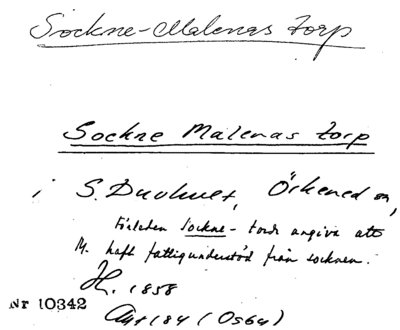 Sockne-Malenas torp
Sockne Malenas torp
i S. Duvhult, Örkened sn,
Förleden Sockne- torde angiva att
M. haft fattigunderstöd från socknen.
H. 1858
Nr 10342
184 (Osby)